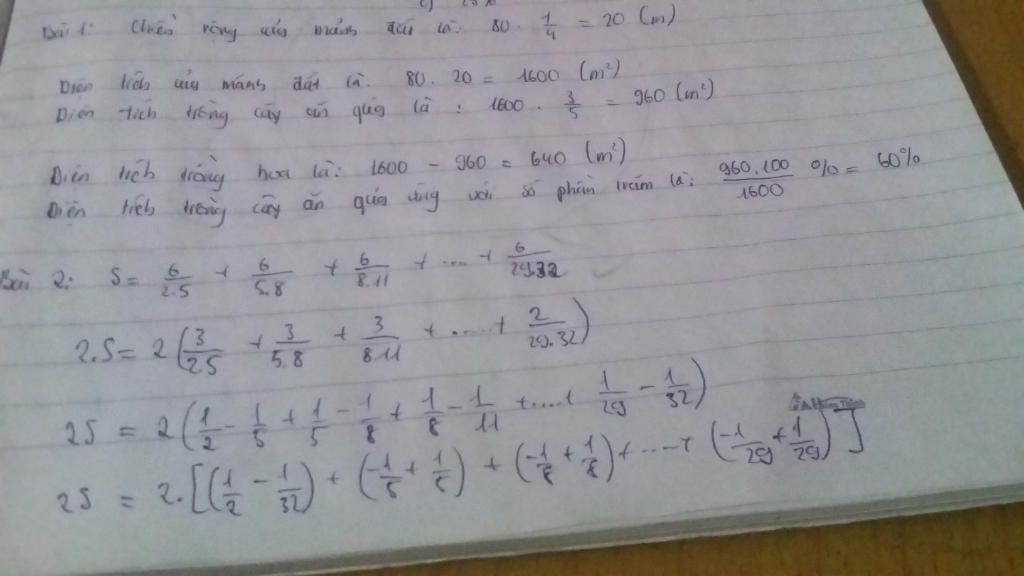 Bài 1: Chiều rộng của mảnh đất là: 80 . 1/4 = 20 (m)
Diện tích của mảnh đất là: 80 . 20 = 1600 (m²)
Diện tích trồng cây ăn quả là : 1600 . 3/5 = 960 (m²)
Diện tích trồng hoa là: 1600 - 960 = 640 (m²)
Diện tích trồng cây ăn quả ứng với số phần trăm là: 960.100/1600 % = 60%
Bài 2: S = 6/2.5 + 6/5.8 + 6/8.11 + .... + 6/29.32
2.S = 2 (3/2.5 + 3/5.8 + 3/8.11 + ..... + 2/29.32)
2S = 2 (1/2 - 1/5 + 1/5 - 1/8 + 1/8 - 1/11 + ....+ 1/29 - 1/32)
2S = 2.[(1/2 - 1/32) + (-1/5 + 1/5) + (-1/8 + 1/8) + ....+ (-1/29 + 1/29)]